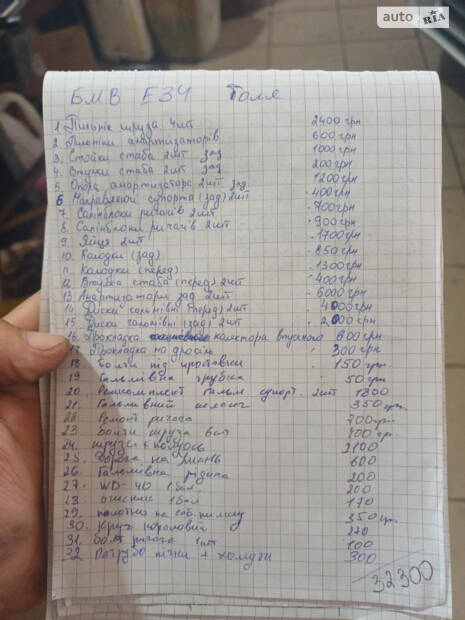 auto RIA
БМВ Е34 Толя
1. Пильнік шруза 4шт 2400 грн
2. Пильніки амартизаторів 600 грн
3. Стойки стаба 2шт зад 1000 грн
4. Втулки стаба 2шт зад 200 грн
5. Опора амартизатора 2шт зад 1200 грн
6. Направляючі супорта (зад) 2шт 400 грн
7. Салінблоки ричагів 2шт 700 грн
8. Салінблоки ричагів 2шт 900 грн
9. Яйця 2шт 1700 грн
10. Колодки (зад) 850 грн
11. Колодки (перед) 1300 грн
12. Втулка стаба (перед) 2шт 400 грн
13. Амартизатори зад 2шт 6000 грн
14. Диски гальмівні (перед) 2шт 4000 грн
15. Диски гальмівні (зад) 2шт 2000 грн
16. Прокладка колектора впускного 600 грн
17. Прокладка на дросіль 300 грн
18. Болти під проставки 150 грн
19. Гальмівна трубка 50 грн
20. Ремкомплект гальм. супорт. 2шт 1800
21. Гальмівний шланг 350 грн
22. Ремонт ричага 700 грн
23. Болти шруза 8шт 400 грн
24. шруз + 2100
25. на 600
26. Гальмівна рідина 200
27. WD-40 1бал 200
28. очисник 1бал 170
29. полотно на 350 грн
30. Круг 220
31. болт ричага 1шт 100
32. Патрубо пічки + хомути 300
32300